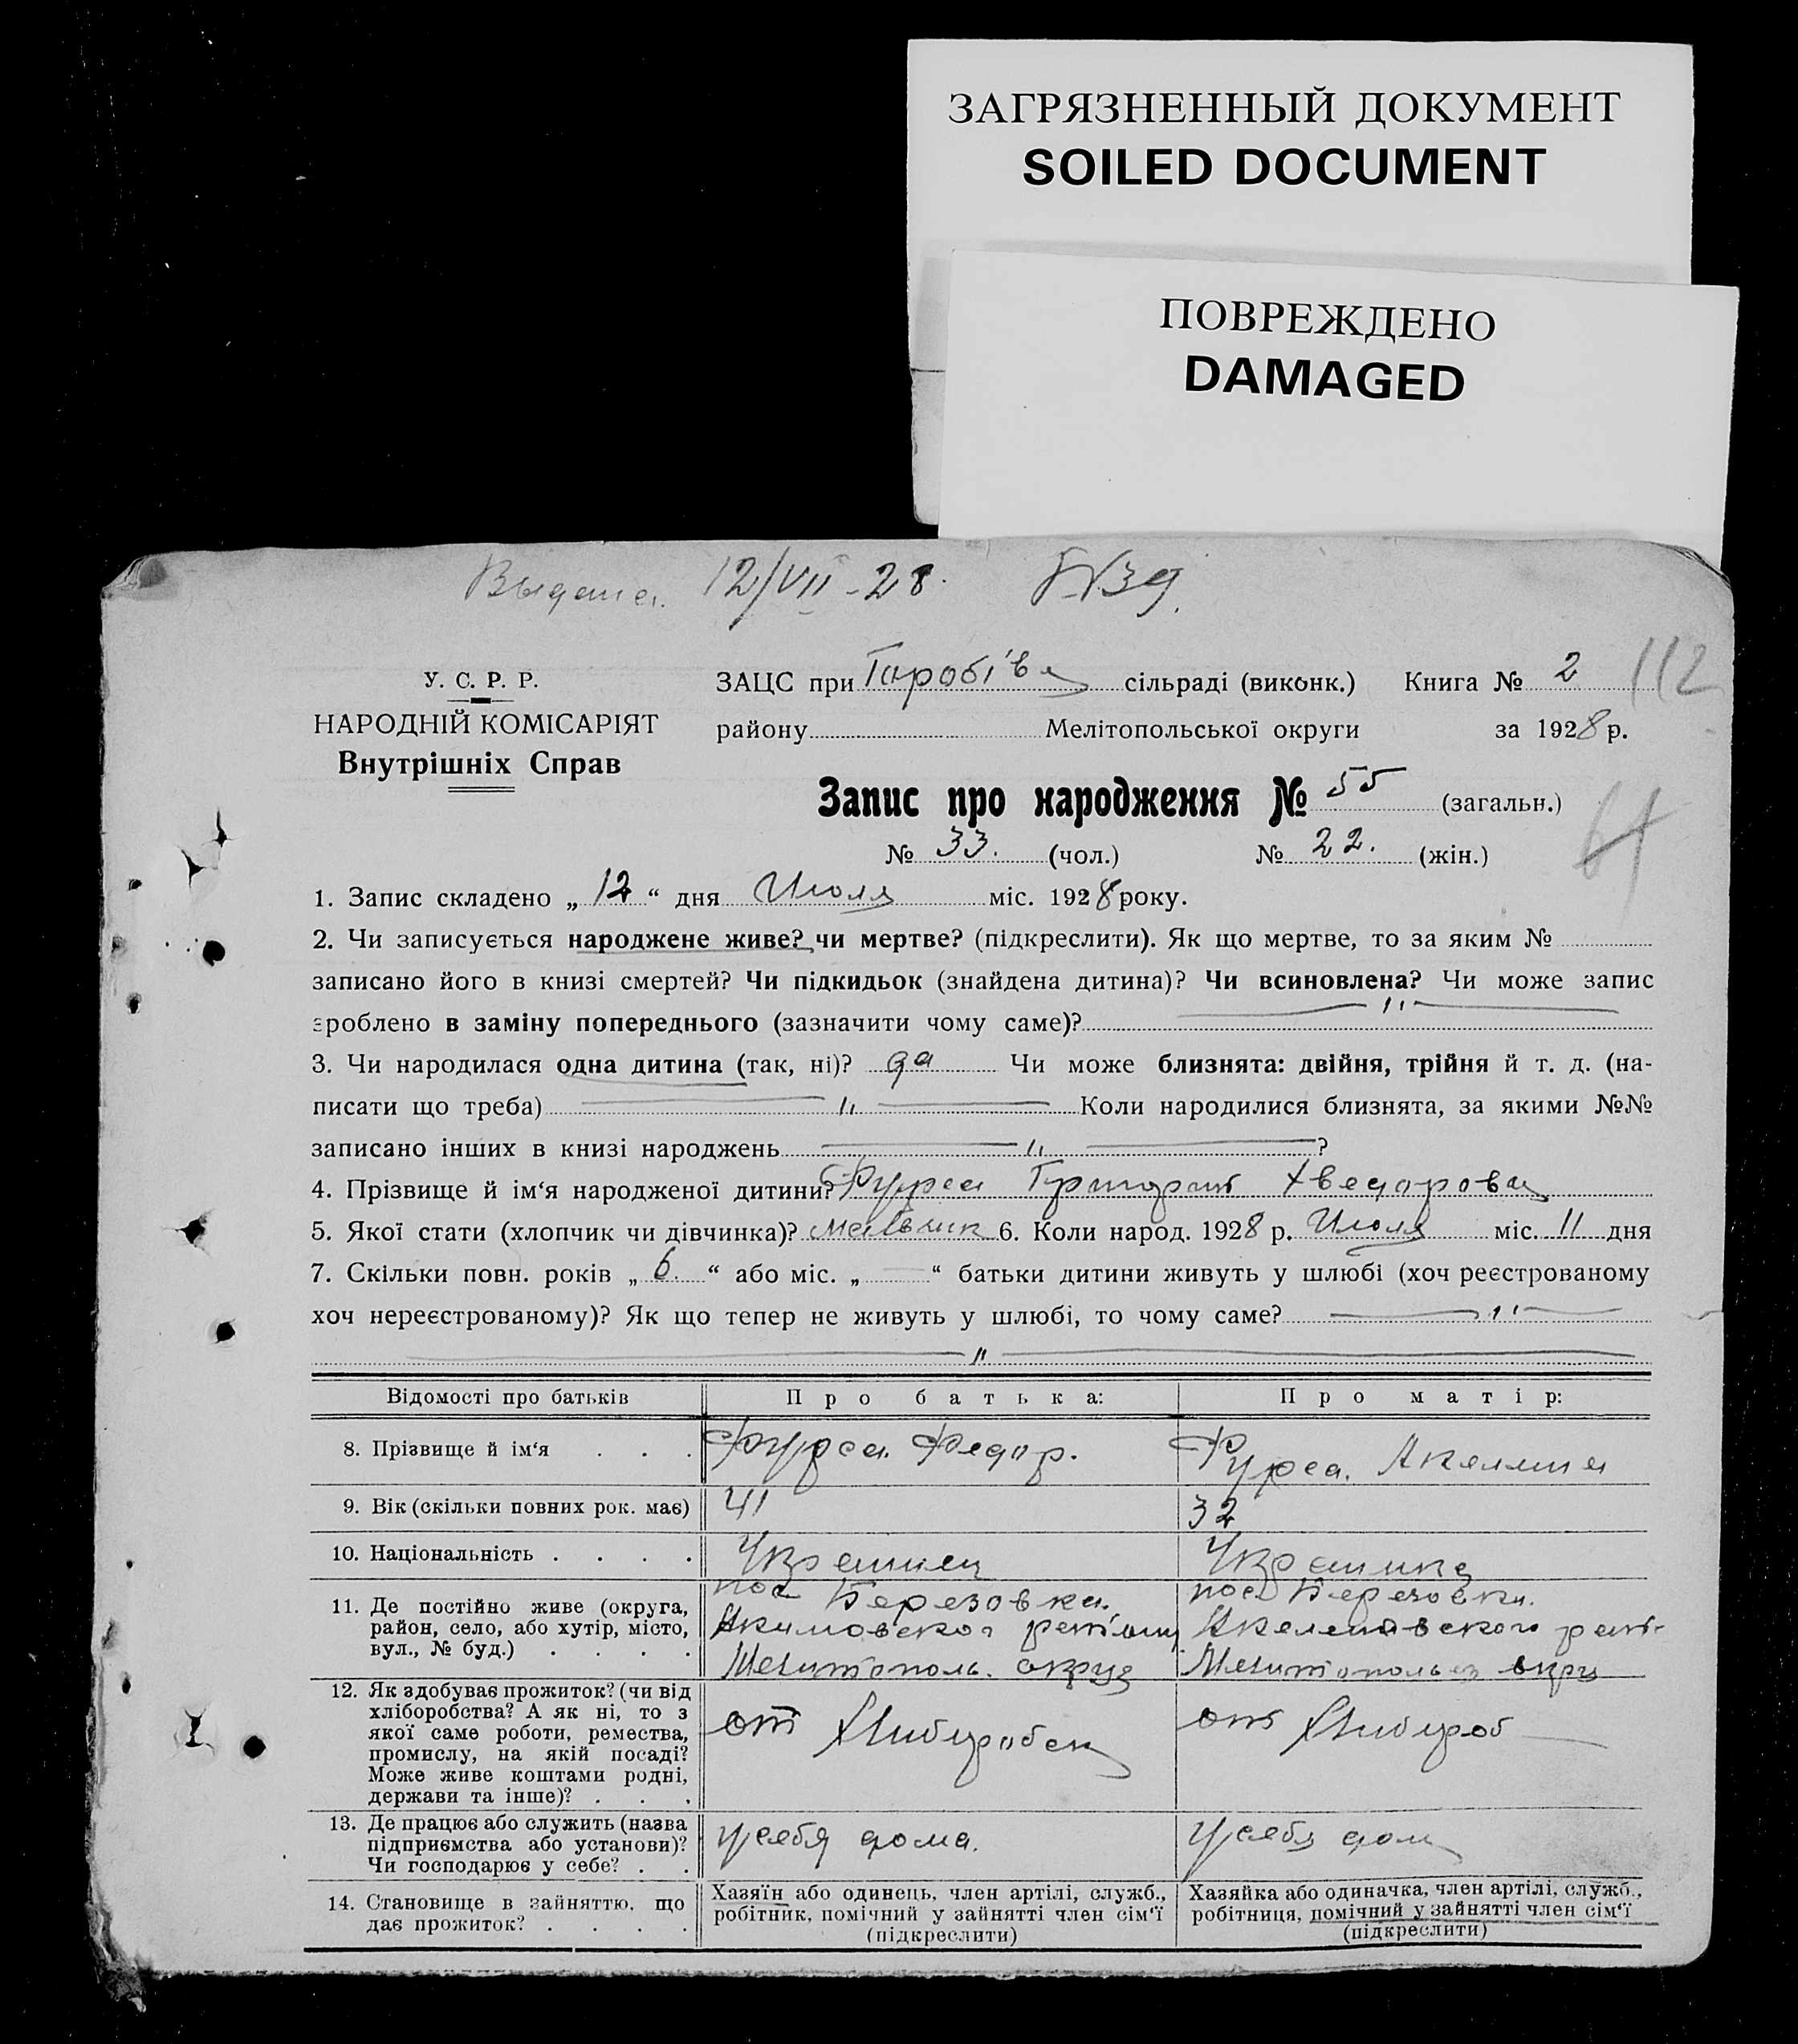 ЗАГРЯЗНЕННЫЙ ДОКУМЕНТ
SOILED DOCUMENT
ПОВРЕЖДЕНО
DAMAGED
Выдана. 12/VII-28. №39.
У. С. Р. Р.
НАРОДНІЙ КОМІСАРІЯТ
Внутрішніх Справ
112
ЗАЦС при сільраді (виконк.) Книга № 2
району Мелітопольської округи за 1928 р.
Запис про народження № 55 (загальн.)
№ 33. (чол.) № 22. (жін.)
1. Запис складено „ 12 “ дня Июля міс. 1928 року.
2. Чи записується народжене живе? чи мертве? (підкреслити). Як що мертве, то за яким №
записано його в книзі смертей? Чи підкидьок (знайдена дитина)? Чи всиновлена? Чи може запис
зроблено в заміну попереднього (зазначити чому саме)?
3. Чи народилася одна дитина (так, ні)? да Чи може близнята: двійня, трійня й т. д. (на-
писати що треба) — „ — Коли народилися близнята, за якими №№
записано інших в книзі народжень — „ — ?
4. Прізвище й ім‘я народженої дитини? Фурса Григорий Хведорова
5. Якої стати (хлопчик чи дівчинка)? мальчик 6. Коли народ. 1928 р. Июля міс. 11 дня
7. Скільки повн. років „ 6. “ або міс. „ — “ батьки дитини живуть у шлюбі (хоч реєстрованому
хоч нереєстрованому)? Як що тепер не живуть у шлюбі, то чому саме? — „ —
— „ —
Відомості про батьків Про батька: Про матір:
8. Прізвище й ім‘я . . . Фурса. Федор. Фурса. Акелина
9. Вік (скільки повних рок. має) 41 32
10. Національність . . . . Украинец Украинка
11. Де постійно живе (округа,
район, село, або хутір, місто,
вул., № буд.) . . . .
пос Березовка.
Акимовског району
Мелитополь. округа
пос Березовки.
Акелемовского рай-
Мелитопольс округ
12. Як здобуває прожиток? (чи від
хліборобства? А як ні, то з
якої саме роботи, ремества,
промислу, на якій посаді?
Може живе коштами родні,
держави та інше)? . . .
от
от
13. Де працює або служить (назва
підприємства або установи)?
Чи господарює у себе? . .
усебя дома.
усебя дома
14. Становище в зайняттю, що
дає прожиток? . . . .
Хазяїн або одинець, член артілі, служб.,
робітник, помічний у зайнятті член сім‘ї
(підкреслити)
Хазяйка або одиначка, член артілі, служб.,
робітниця, помічний у зайнятті член сім‘ї
(підкреслити)